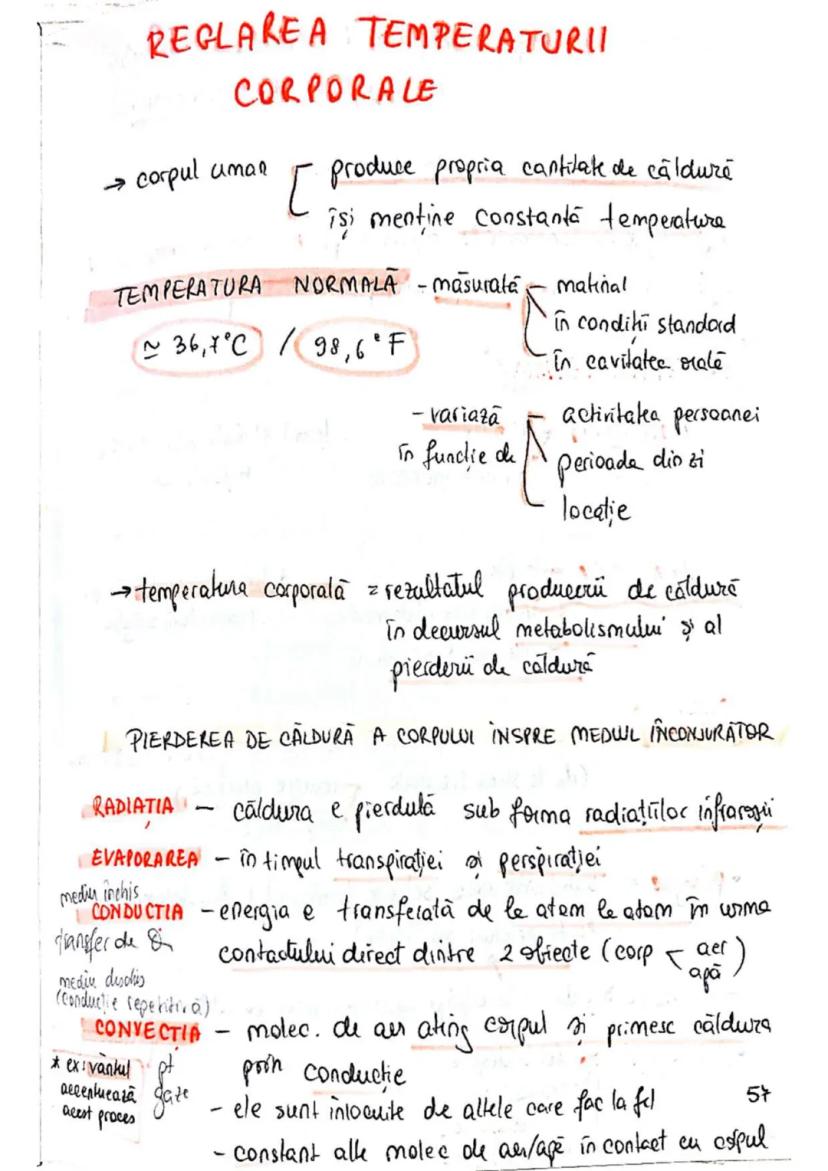 REGLAREA TEMPERATURII
CORPORALE
→ corpul uman produce propria cantitate de căldură
își menține constantă temperatura
TEMPERATURA NORMALĂ - măsurată matinal
în condiții standard
≃ 36,7°C / 98,6°F
în cavitatea orală
- variază activitatea persoanei
în funcție de perioada din zi
locație
→ temperatura corporală = rezultatul producerii de căldură
în decursul metabolismului și al
pierderii de căldură
PIERDEREA DE CĂLDURĂ A CORPULUI ÎNSPRE MEDIUL ÎNCONJURĂTOR
RADIAȚIA - căldura e pierdută sub forma radiațiilor infraroșii
EVAPORAREA - în timpul transpirației și perspirației
mediu închis
CONDUCTIA - energia e transferată de la atom la atom în urma
transfer de
contactului direct dintre 2 obiecte (corp aer
apă)
mediu deschis
(conducție repetitivă)
CONVECTIA - molec. de aer ating corpul și primesc căldura
prin conducție
* ex: vântul
accentuează
acest proces
pt
gaze
- ele sunt înlocuite de altele care fac la fel
57
- constant alte molec de aer/apă în contact cu corpul